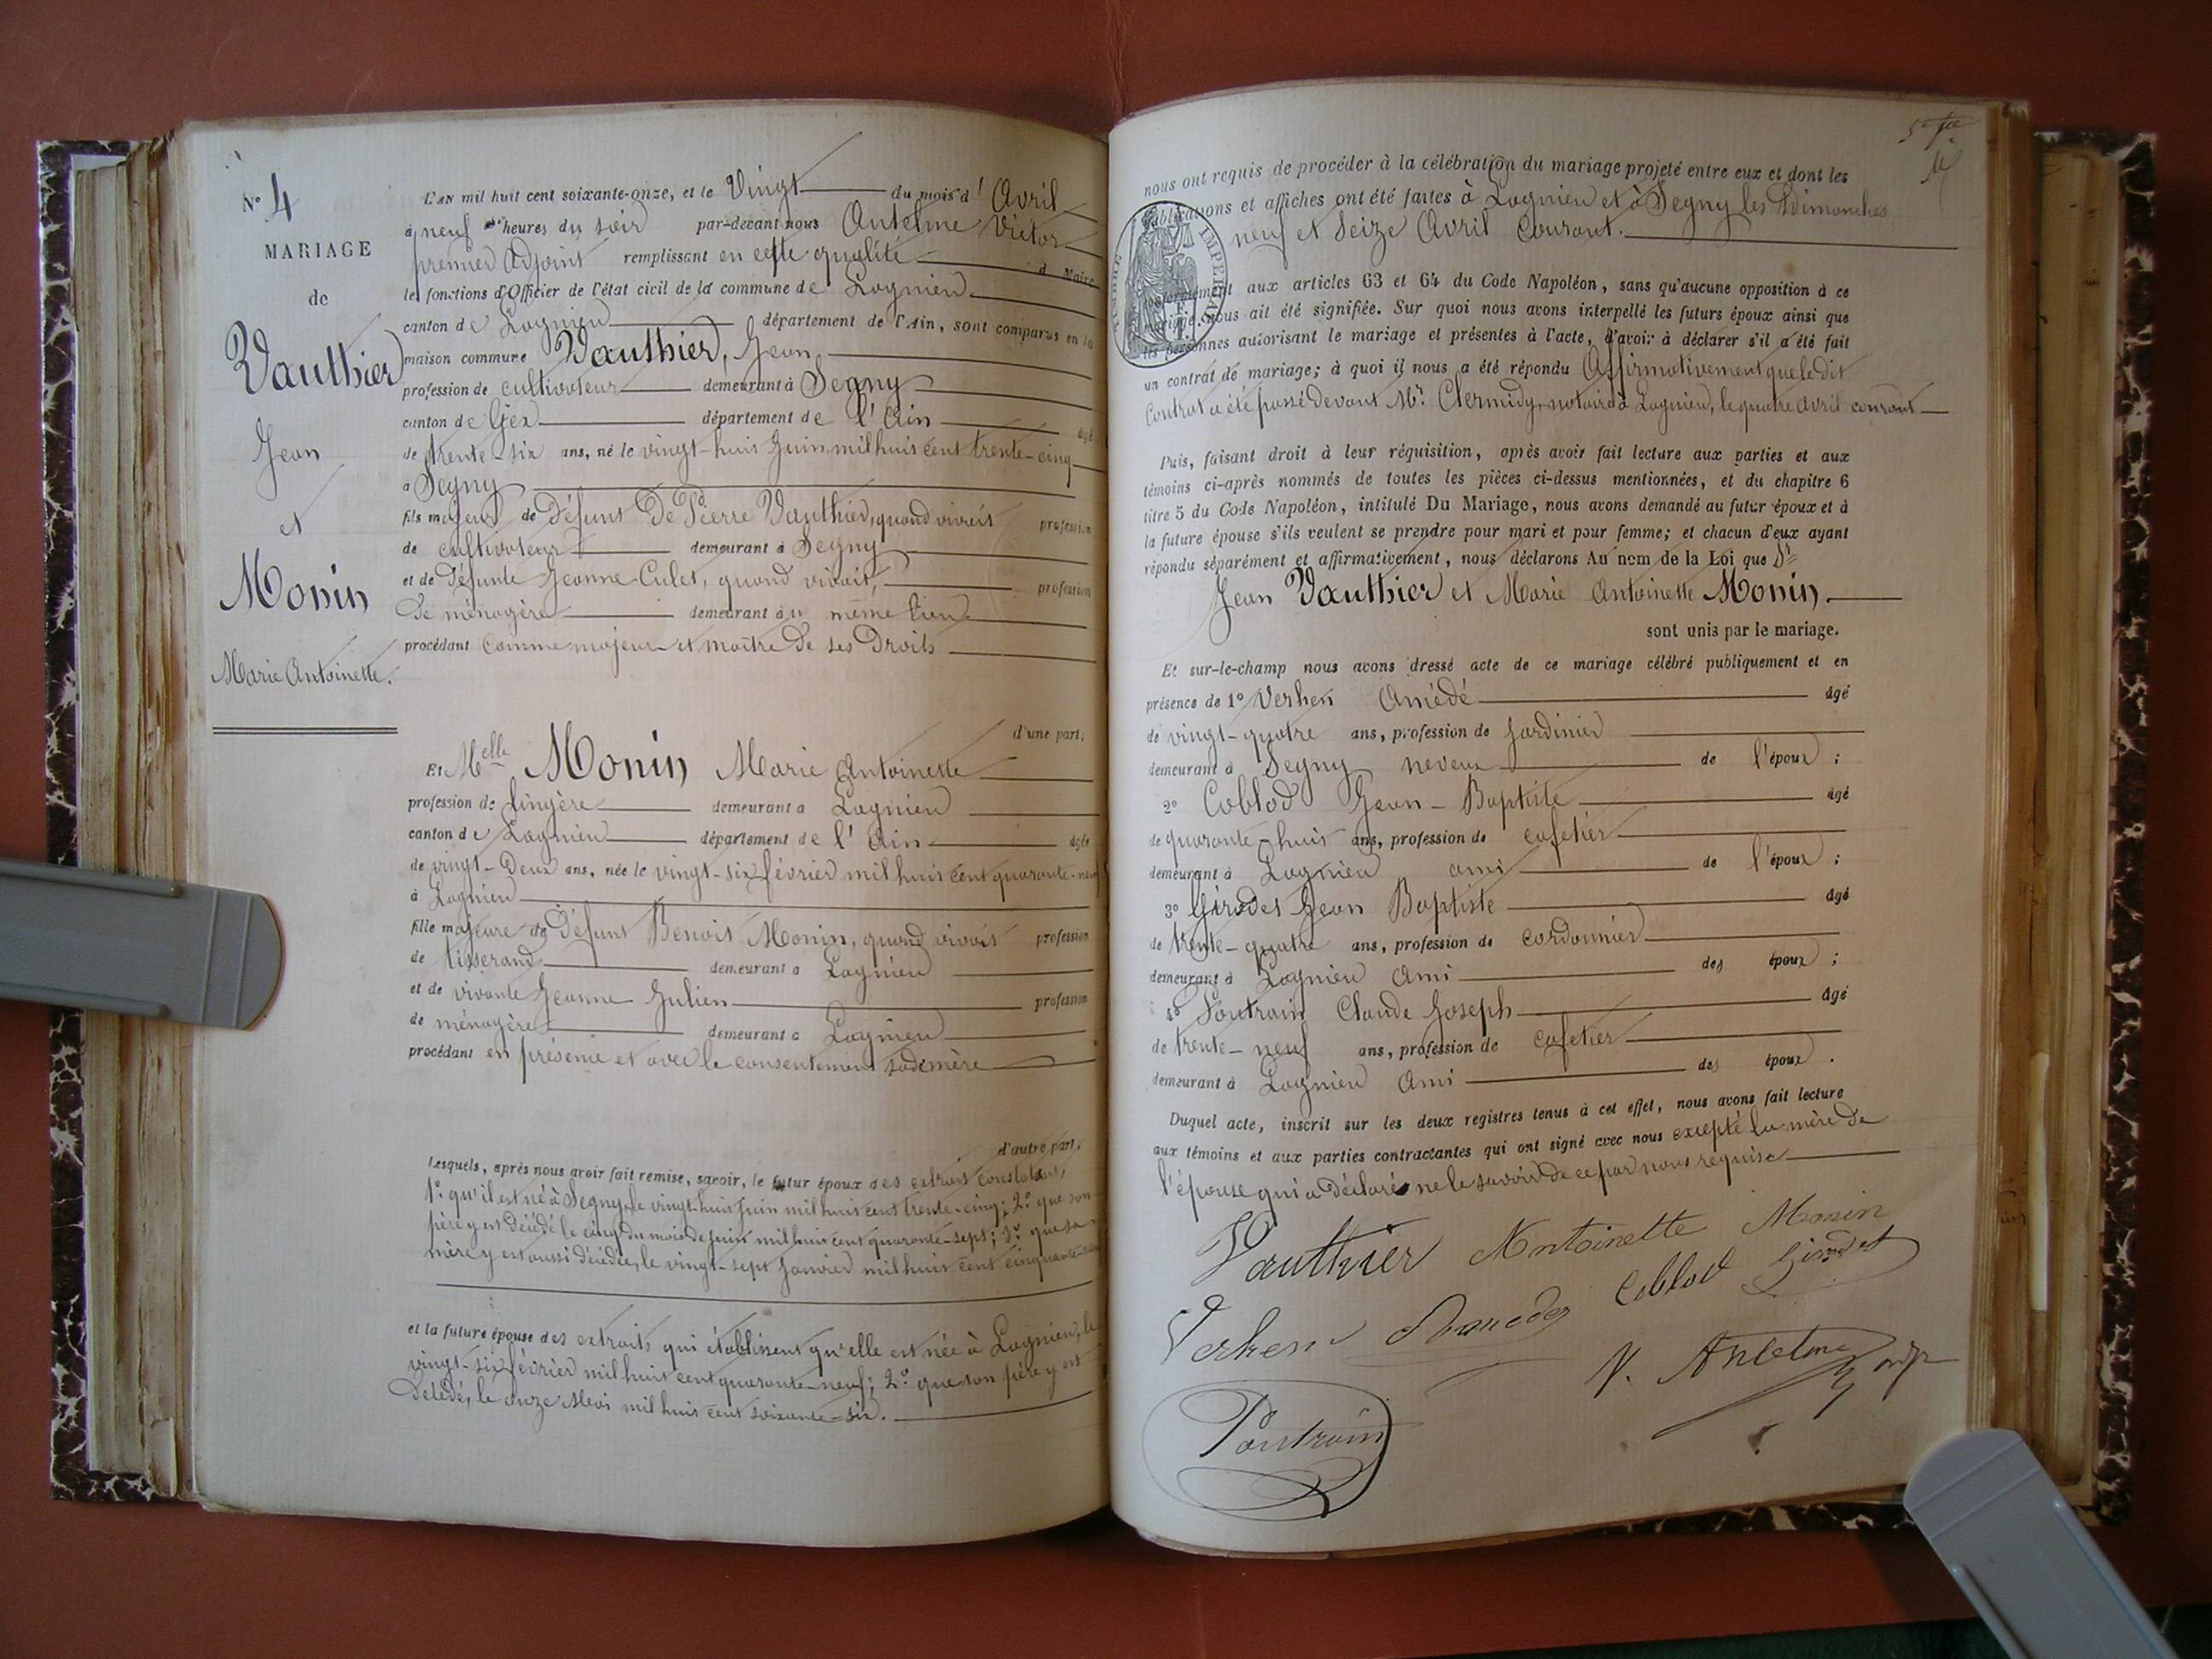 N° 4
MARIAGE
de
Vauthier
Jean
et
Monin
Marie Antoinette.
L'AN mil huit cent soixante-onze, et le Vingt du mois d'Avril
à neuf heures du soir par-devant nous Antelme Victor
premier Adjoint remplissant en cette qualité d Maire
les fonctions d'Officier de l'état civil de la commune de Lagnieu
canton de Lagnieu département de l'Ain, sont comparus en la
maison commune Vauthier, Jean
profession de cultivateur demeurant à Segny
canton de Gex département de l'Ain âgé
de trente-six ans, né le vingt-huit Juin mil huit cent trente-cinq
à Segny
fils majeur de Défunt De Pierre Vauthier, quand vivait profession
de cultivateur demeurant à Segny
et de Défunte Jeanne Culet, quand vivait, profession
de ménagère demeurant au même lieu
procédant comme majeur et maître de ses Droits
d'une part,
Et Melle Monin Marie Antoinette
profession de lingère demeurant à Lagnieu
canton de Lagnieu département de l'Ain âgée
de vingt-Deux ans, née le vingt-six février mil huit cent quarante-neuf
à Lagnieu
fille majeure de Défunt Benoit Monin, quand vivait profession
de tisserand demeurant à Lagnieu
et de vivante Jeanne Julien profession
de ménagère demeurant à Lagnieu
procédant en présence et avec le consentement sademère
d'autre part.
Lesquels, après nous avoir fait remise, savoir, le futur époux des extraits constatant,
1° qu'il est né à Segny, le vingt-huit Juin mil huit cent trente-cinq; 2° que son
père y est décédé le cinq du mois de Juin mil huit cent quarante-sept; 3° que sa
mère y est aussi décédée, le vingt-sept Janvier mil huit cent cinquante
et la future épouse des extraits qui établissent qu'elle est née à Lagnieu, le
vingt-six février mil huit cent quarante-neuf; 2° que son père y est
Décédé, le onze Mai mil huit cent soixante-six.
nous ont requis de procéder à la célébration du mariage projeté entre eux et dont les
publications et affiches ont été faites à Lagnieu et à Segny les Dimanches
neuf et Seize Avril courant.
TIMBRE IMPERIAL
conformément aux articles 63 et 64 du Code Napoléon, sans qu'aucune opposition à ce
mariage nous ait été signifiée. Sur quoi nous avons interpellé les futurs époux ainsi que
les personnes autorisant le mariage et présentes à l'acte, d'avoir à déclarer s'il a été fait
un contrat de mariage; à quoi il nous a été répondu Affirmativement que le dit
Contrat a été passé devant Me. Clermidy, notaire à Lagnieu, le quatre avril courant
Puis, faisant droit à leur réquisition, après avoir fait lecture aux parties et aux
témoins ci-après nommés de toutes les pièces ci-dessus mentionnées, et du chapitre 6
titre 5 du Code Napoléon, intitulé Du Mariage, nous avons demandé au futur époux et à
la future épouse s'ils veulent se prendre pour mari et pour femme; et chacun d'eux ayant
répondu séparément et affirmativement, nous déclarons Au nom de la Loi que
Jean Vauthier et Marie Antoinette Monin.
sont unis par le mariage.
Et sur-le-champ nous avons dressé acte de ce mariage célébré publiquement et en
présence de 1° Verhen Amédé âgé
de vingt-quatre ans, profession de Jardinier
demeurant à Segny neveux de l'époux;
2° Coblod Jean-Baptiste âgé
de quarante-huit ans, profession de cafetier
demeurant à Lagnieu ami de l'époux;
3° Girodet Jean Baptiste âgé
de trente-quatre ans, profession de cordonnier
demeurant à Lagnieu Ami des époux;
4° Poutrain Claude Joseph âgé
de trente-neuf ans, profession de cafetier
demeurant à Lagnieu Ami des époux.
Duquel acte, inscrit sur les deux registres tenus à cet effet, nous avons fait lecture
aux témoins et aux parties contractantes qui ont signé avec nous excepté la mère de
l'épouse qui a déclaré ne le savoir de ce par nous requise
Vauthier Antoinette Monin
Verhen Coblod Girodet
V. Antelme
Poutrain